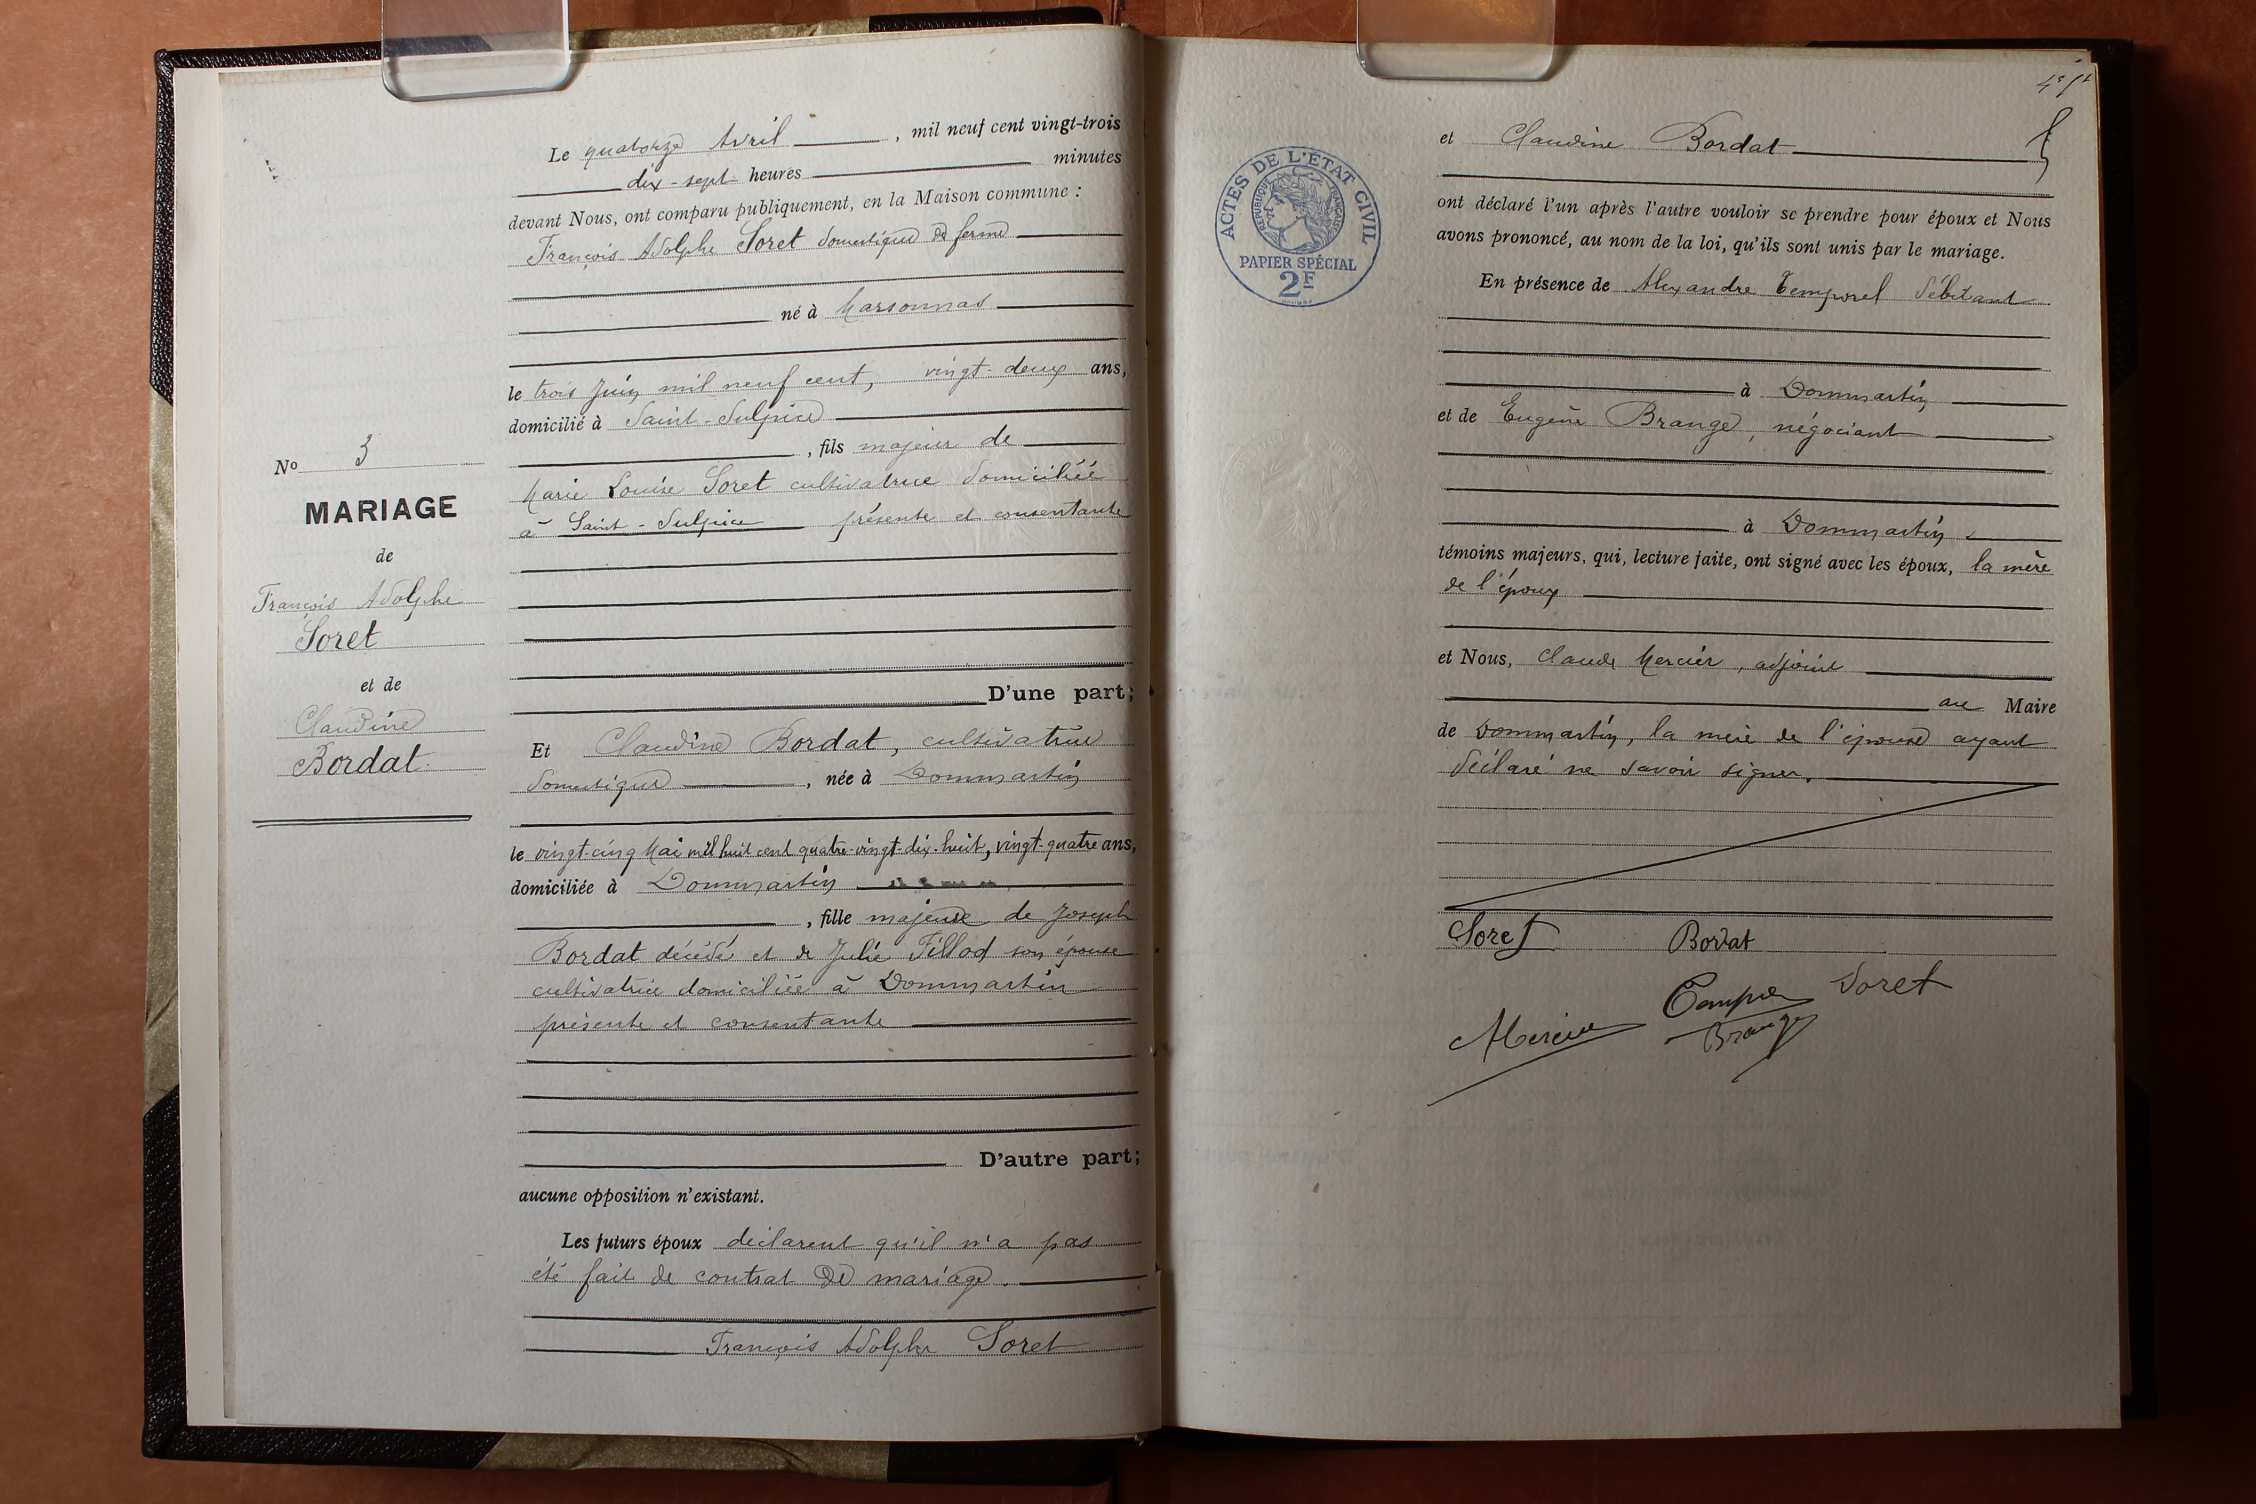 Le quatorze Avril, mil neuf cent vingt-trois
dix-sept heures minutes
devant Nous, ont comparu publiquement, en la Maison commune :
François Adolphe Soret domestique de ferme
né à Marsonnas
le trois Juin mil neuf cent, vingt-deux ans,
domicilié à Saint-Sulpice
, fils majeur de
Marie Louise Soret cultivatrice domiciliée
à Saint-Sulpice présente et consentante
D'une part;
Et Claudine Bordat, cultivatrice
domestique, née à Dommartin
le vingt-cinq Mai mil huit cent quatre-vingt-dix-huit, vingt-quatre ans,
domiciliée à Dommartin
, fille majeure de Joseph
Bordat décédé et de Julie Fillod son épouse
cultivatrice domiciliée à Dommartin
présente et consentante
D'autre part;
aucune opposition n'existant.
Les futurs époux déclarent qu'il n'a pas
été fait de contrat de mariage.
François Adolphe Soret
No 3
MARIAGE
de
François Adolphe
Soret
et de
Claudine
Bordat
ACTES DE L'ÉTAT CIVIL
RÉPUBLIQUE FRANÇAISE
PAPIER SPÉCIAL
2F
et Claudine Bordat
ont déclaré l'un après l'autre vouloir se prendre pour époux et Nous
avons prononcé, au nom de la loi, qu'ils sont unis par le mariage.
En présence de Alexandre Temporel débitant
à Dommartin
et de Eugène Brange, négociant
à Dommartin
témoins majeurs, qui, lecture faite, ont signé avec les époux, la mère
de l'époux
et Nous, Claude Mercier, adjoint
au Maire
de Dommartin, la mère de l'épouse ayant
déclaré ne savoir signer.
Soret Bordat
Soret
Mercier
Brange